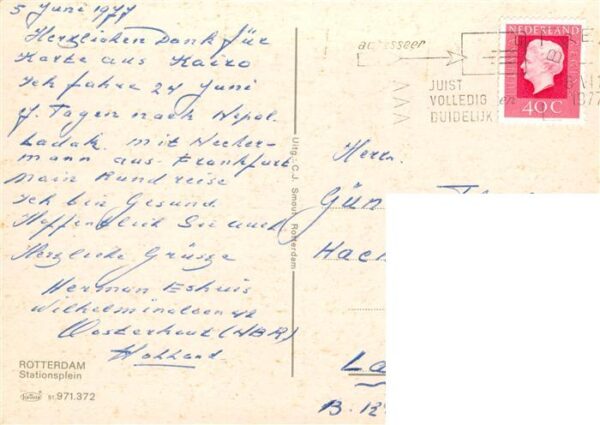 5 Juni 1977
Herzlichen Dank für
Karte aus Kairo
Ich fahre 24 Juni
Tagen nach Nepal
Ladak. mit Necker-
mann aus Frankfurt
Main Rundreise
Ich bin Gesund
Hoffentlich Sie auch
Herzliche Grüsze
Herman Eshuis
Oosterhout (NBR)
Holland
ROTTERDAM
Stationsplein
51.971.372
Uitg.: C.J. Smout, Rotterdam
adresseer
JUIST
VOLLEDIG en
DUIDELIJK
1977
NEDERLAND
40C
Herrn
Gün
Hac
La
B. 12